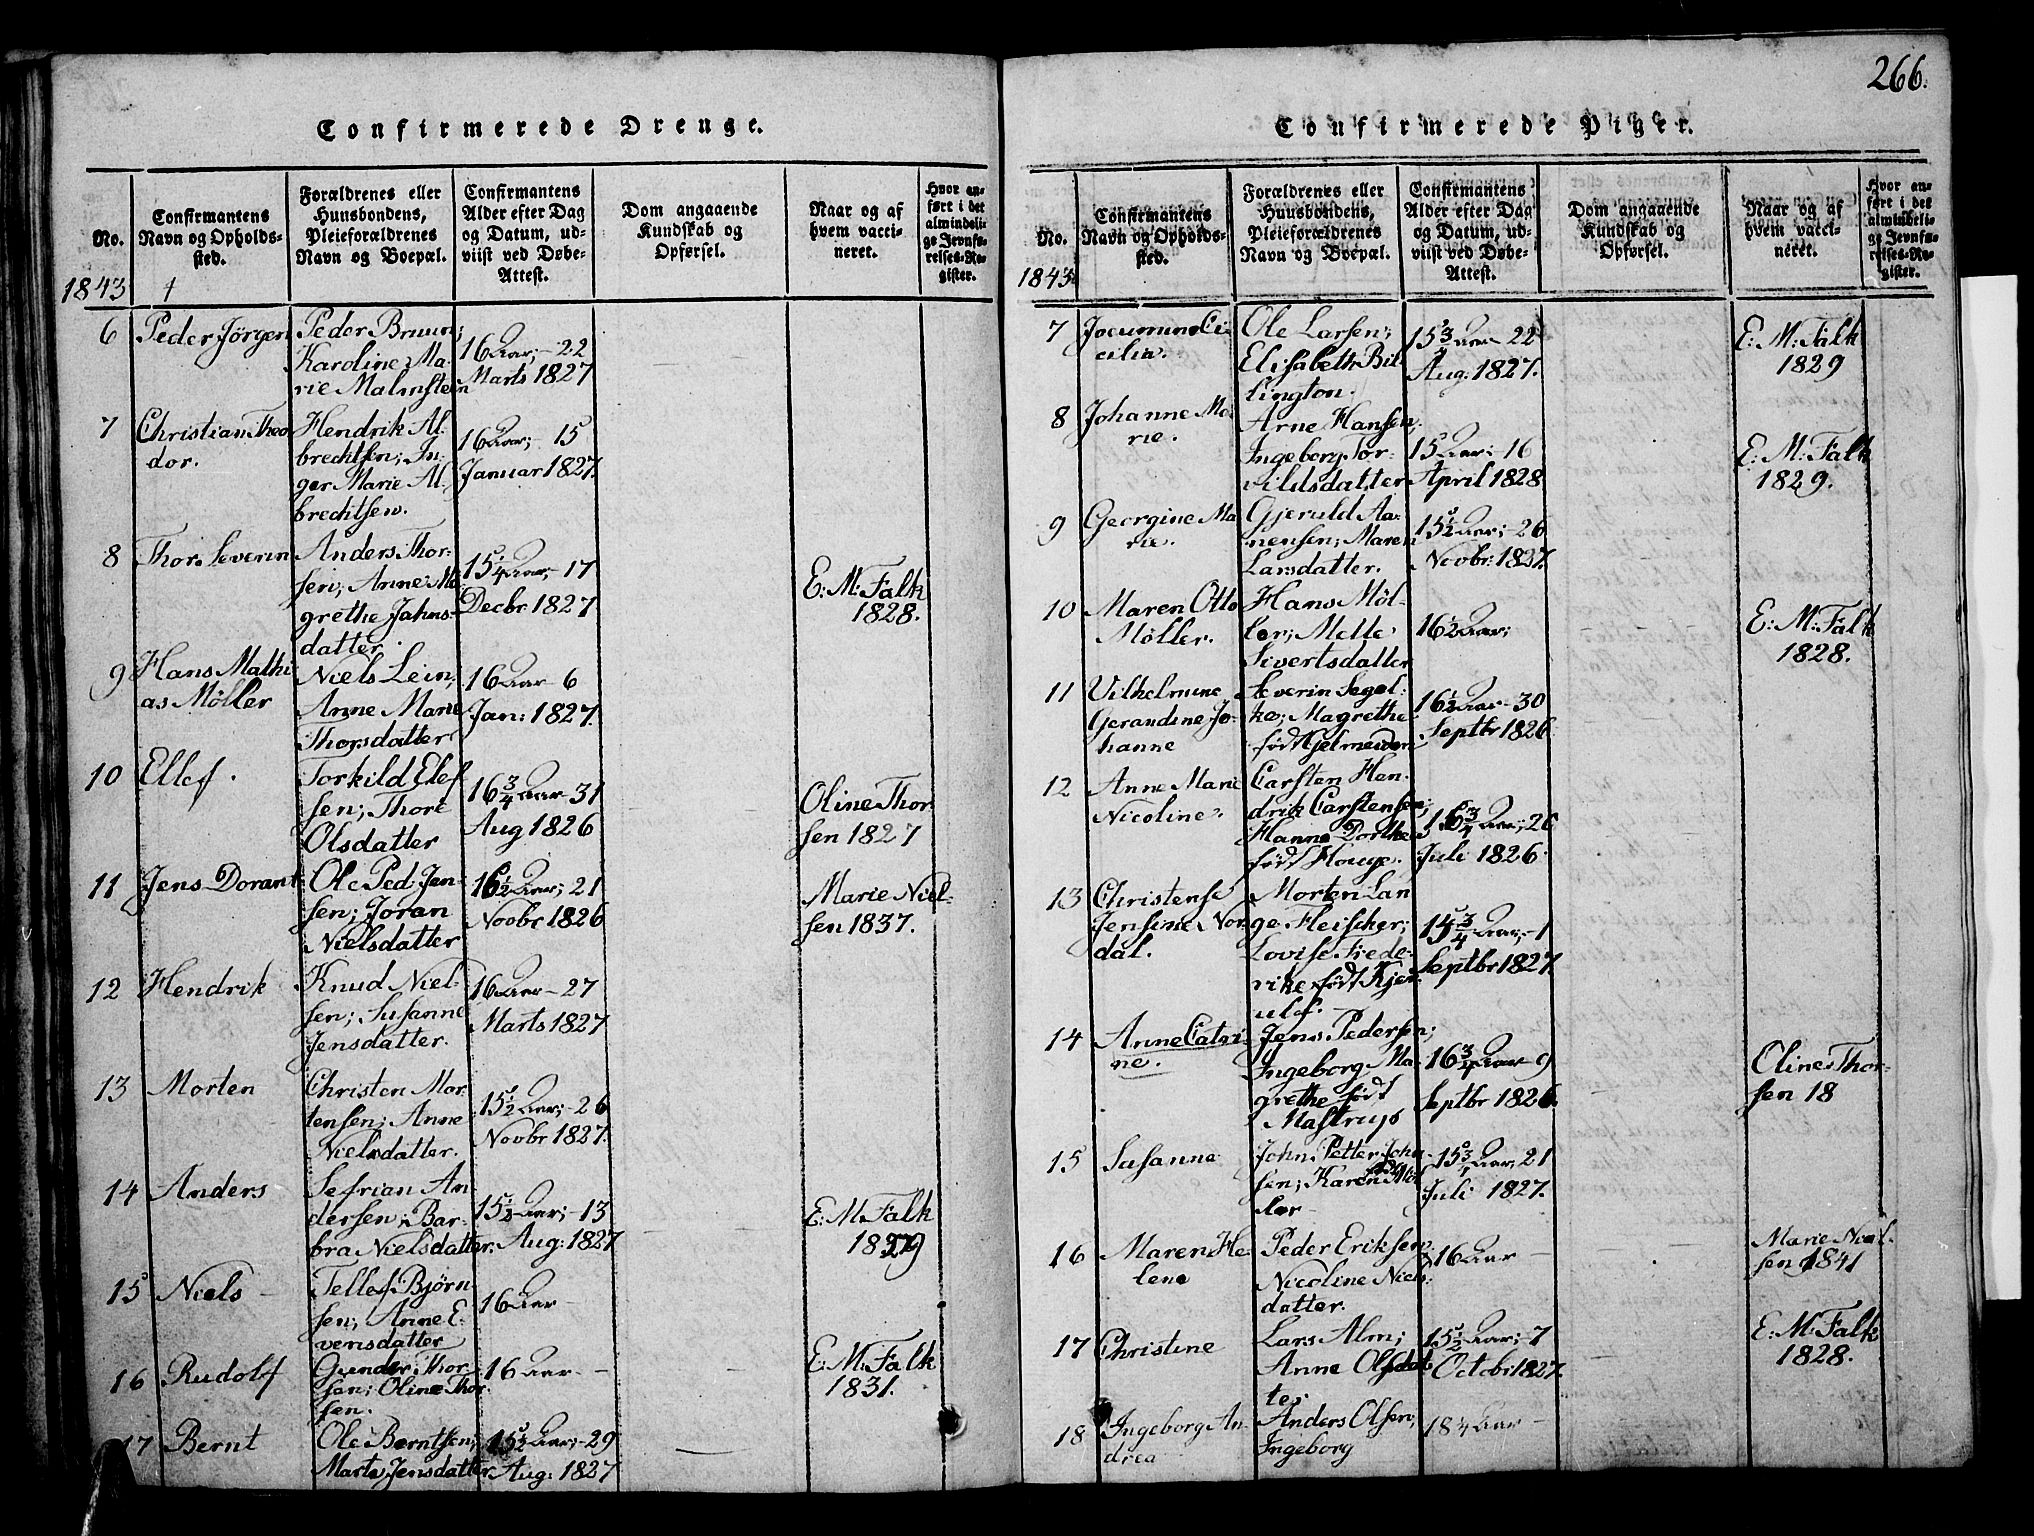 Confirmerede Drenge.
No.
Confirmantens
Navn og Opholds-
sted.
Forældrenes eller
Huusbondens,
Pleieforældrenes
Navn og Boepæl.
Confirmantens
Alder efter Dag
og Datum, ud-
viist ved Døbe-
Attest.
Dom angaaende
Kundskab og
Opførsel.
Naar og af
hvem vacci-
neret.
Hvor an-
ført i det
almindeli-
ge Jevnfø-
relses-Re-
gister.
1843
6 Peder Jörgen
Peder Bruun;
Karoline Ma-
rie Malmstein
16 Aar; - 22
Marts 1827
7 Christian Theo
dor.
Hendrik Al-
brechtsen; In-
ger Marie Al-
brechtsen.
16 Aar; - 15
Januar 1827.
8 Thor Severin
Anders Thor-
sen; Anne Ma
grethe Jahns-
datter.
15 1/4 Aar; - 17
Decbr 1827
E: M: Falk
1828.
9 Hans Mathi
as Möller
Niels Lein;
Anne Marie
Thorsdatter
16 Aar - 6
Jan: 1827.
10 Ellef.
Torkild Elef
sen; Thore
Olsdatter
16 3/4 Aar - 31
Aug 1826
Oline Thor
sen 1827
11 Jens Dorant
Ole Ped Jen-
sen; Joran
Nielsdatter
16 1/2 Aar; 21
Novbr 1826
Marie Niel-
sen 1837.
12 Hendrik
Knud Niel-
sen; Susanne
Jensdatter.
16 Aar - 27
Marts 1827
13 Morten
Christen Mor-
tensen; Anne
Nielsdatter.
15 1/2 Aar; - 26
Novbr 1827.
14 Anders
Sefrian An
dersen; Bar-
bra Nielsdatter.
15 1/2 Aar; - 13
Aug: 1827
E: M. Falk
15 Niels
Tellef Björn
sen; Anne E-
vensdatter
16 Aar -
16 Rudolf
Gunder Thor-
sen; Oline Thor
sen.
16 Aar -
E: M. Falk
1831.
17 Bernt
Ole Berntsen;
Marta Jensdatter
15 1/2 Aar; - 29
Aug: 1827
266.
Confirmerede Piger.
No.
Confirmantens
Navn og Opholds-
sted.
Forældrenes eller
Huusbondens,
Pleieforældrenes
Navn og Boepæl.
Confirmantens
Alder efter Dag
og Datum, ud-
viist ved Døbe-
Attest.
Dom angaaende
Kundskab og
Opførsel.
Naar og af
hvem vacci-
neret.
Hvor an-
ført i det
almindeli-
ge Jevnfø-
relses-Re-
gister.
1843
7 Ce
cilia.
Ole Larsen;
Elisabeth Bil
lington.
15 3/4 Aar - 22
Aug: 1827.
E: M: Falk
1829
8 Johanne Ma
rie.
Arne Hansen;
Ingeborg Tor-
vildsdatter
15 Aar; - 16
April 1828
E: M: Falk
1829.
9 Georgine Ma
rie.
Gjeruld Aa-
nensen; Maren
Larsdatter.
15 1/2 Aar; - 26
Novbr: 1827.
10 Maren Otto
Möller.
Hans Möl-
ler; Mette
Sivertsdatter
16 1/2 Aar;
E: M: Falk
1828.
11 Vilhelmine
Gerandine Jo-
hanne
Severin Segel-
ke; Magrethe
född
16 1/2 Aar - 30
Septbr 1826.
12 Anne Marie
Nicoline.
Carsten Hen-
drik Carstensen;
Hanne Dorthea
född Houge.
16 3/4 Aar; 26
Juli 1826.
13 Christense
Jensine Nor-
dal.
Morten Lan
ge Fleischer;
Lovise Frede-
rike född Kjer
ulf.
15 3/4 Aar; - 1
Septbr 1827.
14 Anne Catri
ne.
Jens Pedersen;
Ingeborg Ma-
grethe född
Mastrup
16 3/4 Aar 9
Septbr 1826.
Oline Thor-
sen 18
15 Susanne
John Petter John
sen; Karen född Möl
ler
15 3/4 Aar; 21
Juli 1827.
16 Maren He-
lene
Peder Eriksen;
Nicoline Niels
datter.
16 Aar -
Marie Niel-
sen 1841
17 Christine
Lars Alm;
Anne Olsdat
ter
15 1/2 Aar; - 7
Octobr 1827.
E: M: Falk
1828.
18 Ingeborg An
drea
Anders Olsen;
Ingeborg
18 1/4 Aar -